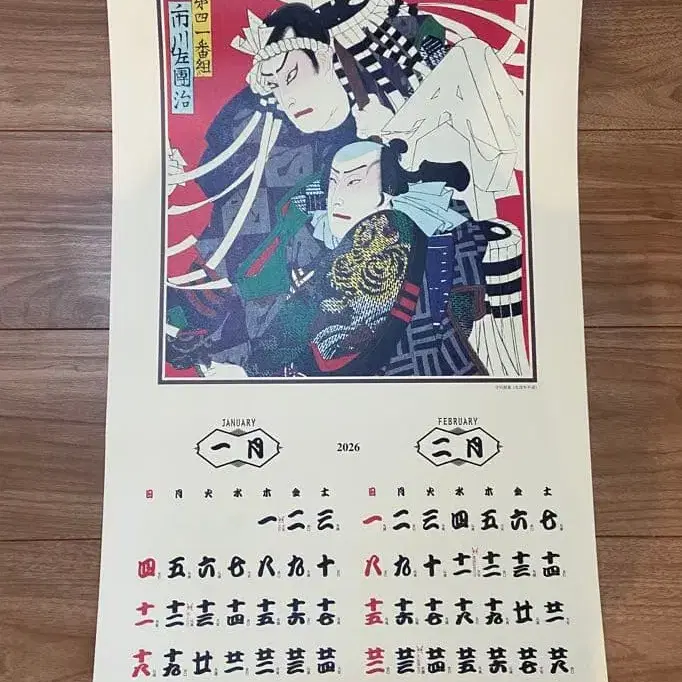 第四一番組
市川左團治
JANUARY
一月
2026
FEBRUARY
二月
日 月 火 水 木 金 土
一 二 三
四 五 六 七 八 九 十
十一 十二 十三 十四 十五 十六 十七
十八 十九 廿 廿一 廿二 廿三 廿四
日 月 火 水 木 金 土
一 二 三 四 五 六 七
八 九 十 十一 十二 十三 十四
十五 十六 十七 十八 十九 廿 廿一
廿二 廿三 廿四 廿五 廿六 廿七 廿八